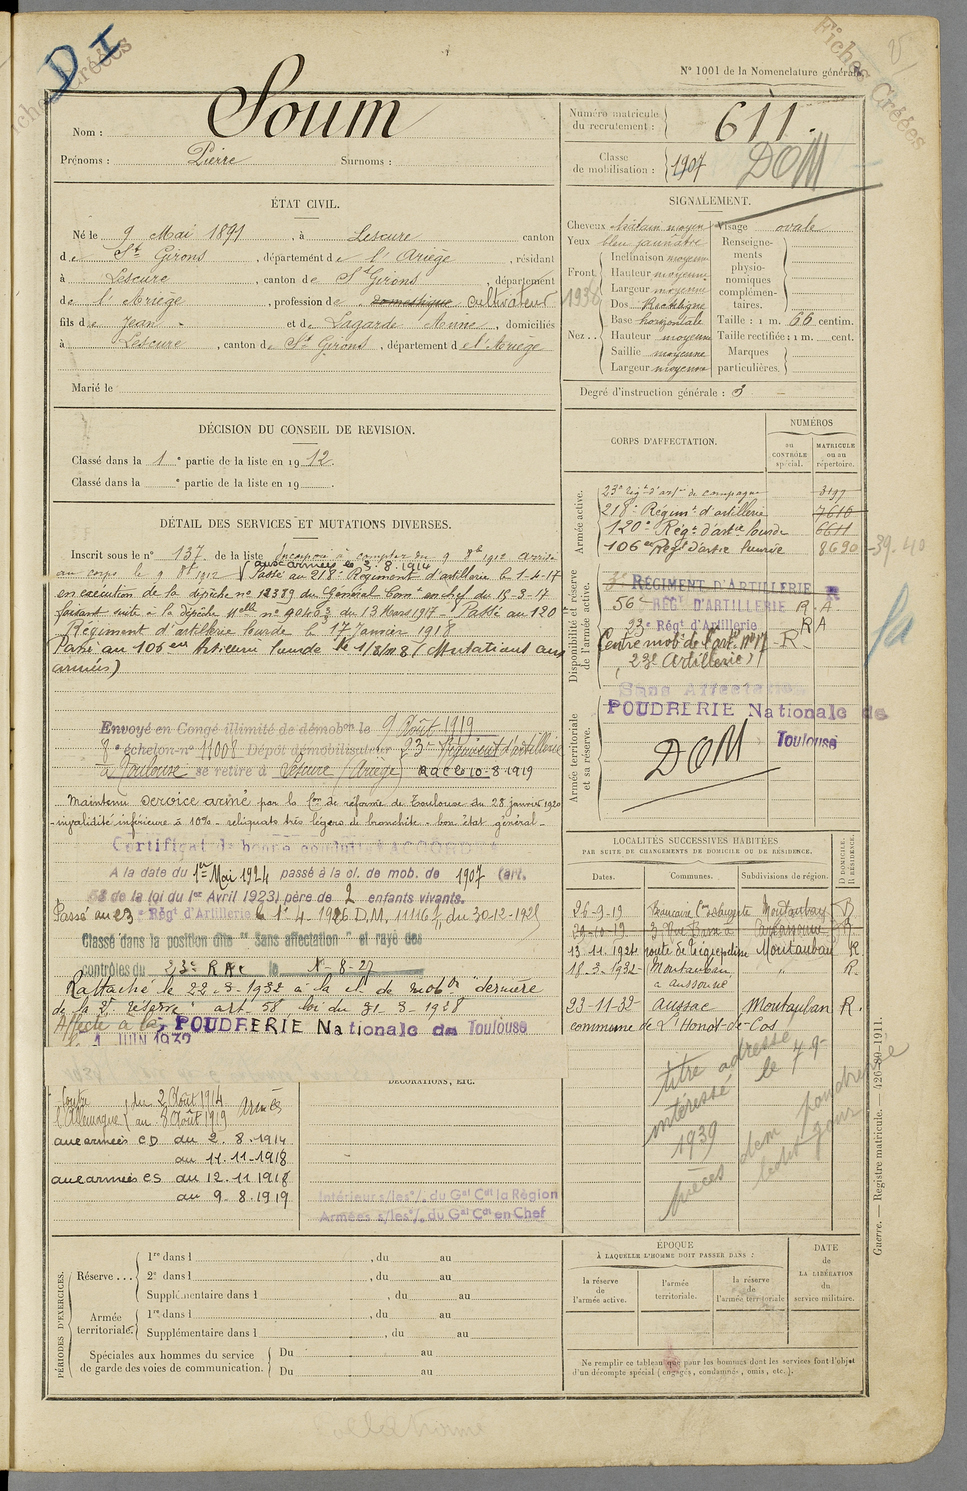 D I
Fiches Créées
Fiches Créées
N° 1001 de la Nomenclature générale.
Nom : Soum
Prénoms : Pierre Surnoms :
Numéro matricule du recrutement : 611.
Classe de mobilisation : 1907
DOM
ÉTAT CIVIL.
Né le 9 Mai 1891, à Lescure canton
de St Girons, département de l'Ariège, résidant
à Lescure, canton de St Girons, département
de l'Ariège, profession de domestique cultivateur
fils de Jean et de Lagarde Anne, domiciliés
à Lescure, canton de St Girons, département de l'Ariège
Marié le
SIGNALEMENT.
Cheveux châtain moyen
Yeux bleu jaunâtre
Front
Inclinaison moyenne
Hauteur moyenne
Largeur moyenne
Nez
Dos Rectiligne
Base horizontale
Hauteur moyenne
Saillie moyenne
Largeur moyenne
Visage ovale
Renseignements physionomiques complémentaires.
Taille : 1 m. 66 centim.
Taille rectifiée : 1 m. cent.
Marques particulières.
Degré d'instruction générale : 3
DÉCISION DU CONSEIL DE REVISION.
Classé dans la 1e partie de la liste en 1912.
Classé dans la e partie de la liste en 19 .
DÉTAIL DES SERVICES ET MUTATIONS DIVERSES.
Inscrit sous le n° 137 de la liste Incorporé à compter du 9 8bre 1912 arrivé
au corps le 9 8bre 1912 aux armées le 3.8.1914 Passé au 218e Régiment d'artillerie le 1-4-17
en exécution de la dépêche n° 12389 du Général Comt en chef du 15-3-17
faisant suite à la Dépêche Mlle n° 90403 du 13 Mars 1917 - Passé au 120e
Régiment d'artillerie lourde le 17 Janvier 1918
Passé au 106e artillerie lourde le 1/8/1918 (Mutations aux
armées)
Envoyé en Congé illimité de démobon le 9 Août 1919
8e échelon n° 11008 Dépôt démobilisateur 23e Régiment d'artillerie
à Toulouse se retire à Lescure (Ariège) R.A.C le 10-8-1919
Maintenu service armé par la Con de réforme de Toulouse du 28 janvier 1920
- invalidité inférieure à 10% - reliquats très légers de bronchite - bon état général -
Certificat de bonne conduite ACCORDÉ
A la date du 1er Mai 1924 passé à la cl. de mob. de 1907 (art.
58 de la loi du 1er Avril 1923) père de 2 enfants vivants.
Passé au 23e Régt d'Artillerie le 1.4.1926 D.M. 11116 du 30-12-1925
Classé dans la position dite "Sans affectation" et rayé des
contrôles du 23e RAC le 1-8-27
Rattaché le 22-3-1932 à la cl. de mobon dernière
de la 2e réserve art. 58 loi du 31-3-1928
Affecté à la POUDRERIE Nationale de Toulouse
le 1 JUIN 1932
CORPS D'AFFECTATION.
NUMÉROS
au CONTRÔLE spécial.
MATRICULE ou au répertoire.
Armée active.
23e régt d'artie de campagne 3197
218e Régimt d'artillerie 7610
120e Régt d'artie lourde 6611
106e Régt d'artie lourde 8690
39-40
Disponibilité et réserve de l'armée active.
RÉGIMENT D'ARTILLERIE R
56e RÉGt D'ARTILLERIE R.A.
23e Régt d'Artillerie RA
Centre mob. de l'artie n° 17 - R -
(23e Artillerie)
Sans Affectation
POUDRERIE Nationale de
Toulouse
DOM
Armée territoriale et sa réserve.
LOCALITÉS SUCCESSIVES HABITÉES
PAR SUITE DE CHANGEMENTS DE DOMICILE OU DE RÉSIDENCE.
Dates. Communes. Subdivisions de région. D DOMICILE. R RÉSIDENCE.
26-9-19 Montauban
29-10-19 Carcassonne R
13-11-1924 Montauban R
18-3-1932 Montauban " R.
à Aussonne
23-11-32 Aussac Montauban R.
commune de L'Honor-de-Cos
titre adresse
intéressé le 7-9-
1939
DÉCORATIONS, ETC.
Contre l'Allemagne du 2 Août 1914 au 8 Août 1919 Armées
aux armées CD du 2.8.1914
au 11.11-1918
aux armées CS du 12.11.1918
au 9-8.1919
Intérieur s/les o/. du Gal Cdt la Région
Armées s/les o/. du Gal Cdt en Chef
PÉRIODES D'EXERCICES.
Réserve ...
1re dans l , du au
2e dans l , du au
Supplémentaire dans l , du au
Armée territoriale.
1re dans l , du au
Supplémentaire dans l , du au
Spéciales aux hommes du service de garde des voies de communication.
Du au
Du au
ÉPOQUE
À LAQUELLE L'HOMME DOIT PASSER DANS :
la réserve de l'armée active.
l'armée territoriale.
la réserve de l'armée territoriale
DATE de LA LIBÉRATION du service militaire.
Ne remplir ce tableau que pour les hommes dont les services font l'objet
d'un décompte spécial (engagés, condamnés, omis, etc.).
Guerre. — Registre matricule. — 426-89-1911.